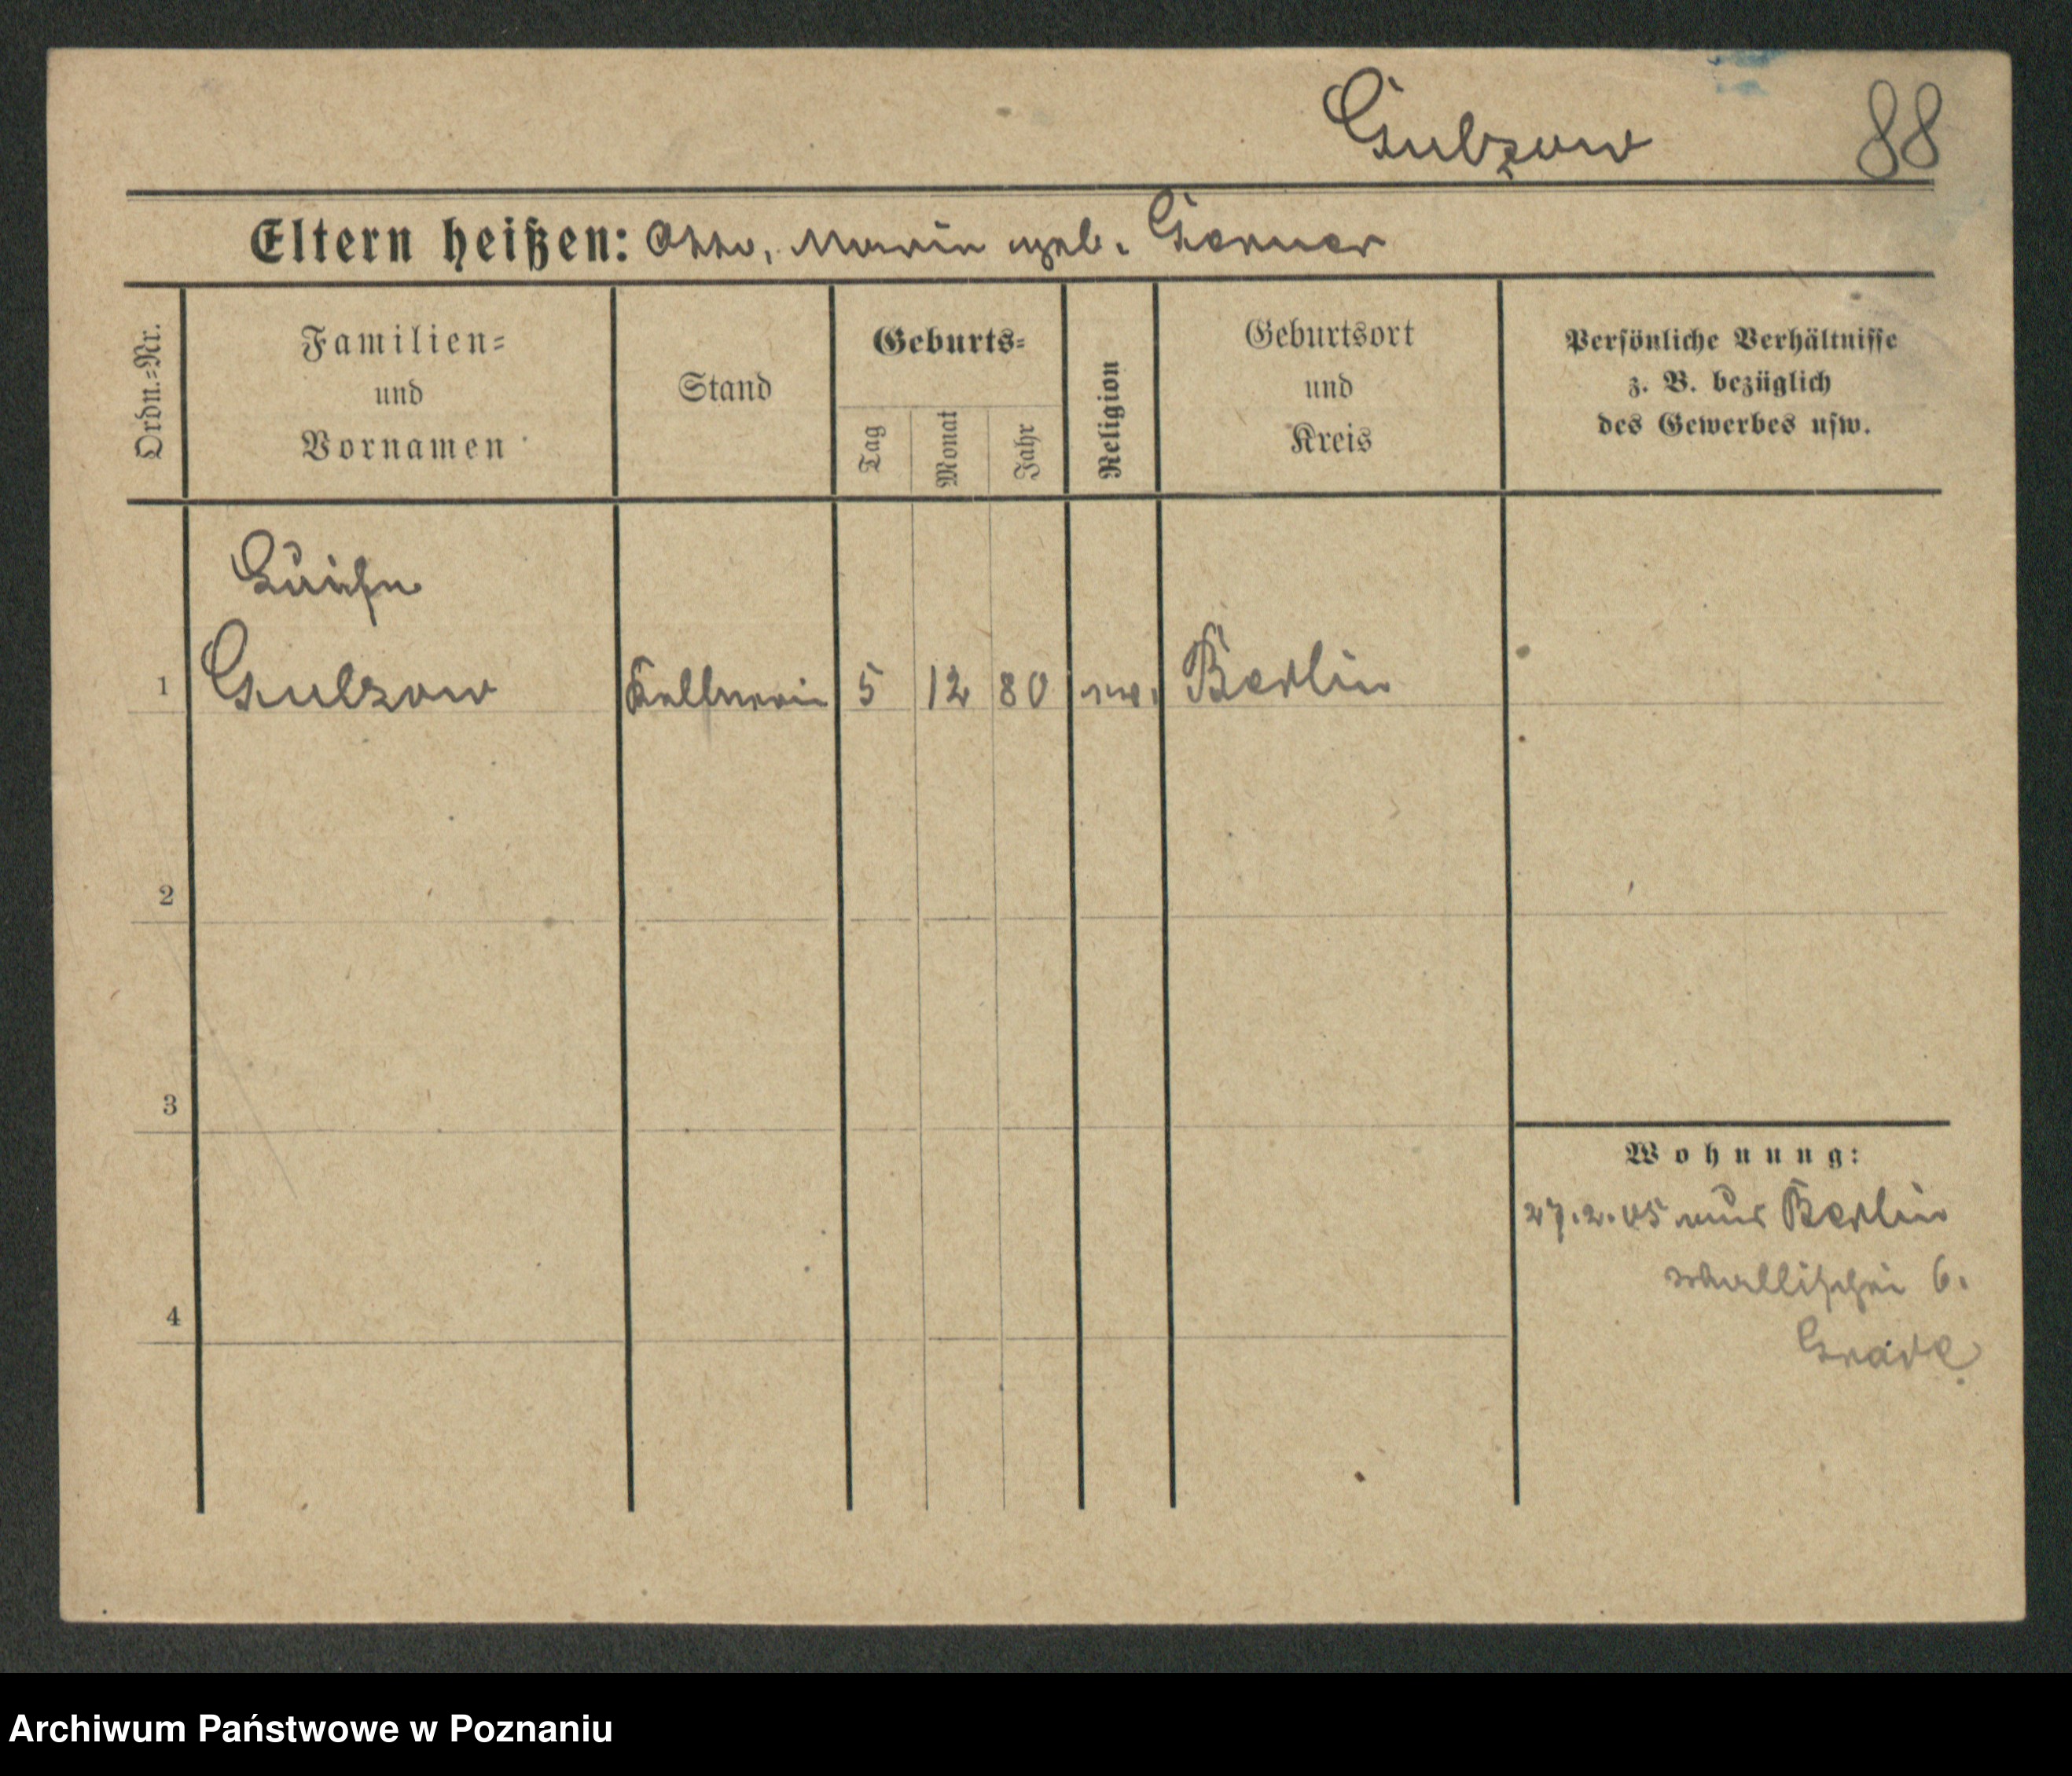 Gulzow 88
Eltern heißen: Otto, Marie geb. Gerner
Ordn.-Nr.
Familien-
und
Vornamen
Stand
Geburts-
Tag
Monat
Jahr
Religion
Geburtsort
und
Kreis
Persönliche Verhältnisse
z. B. bezüglich
des Gewerbes usw.
Luise
1 Gulzow Kellnerin 5 12 80 ev. Berlin
2
3
4
Wohnung:
27.2.05 aus Berlin
Wallischei 6.
Archiwum Państwowe w Poznaniu